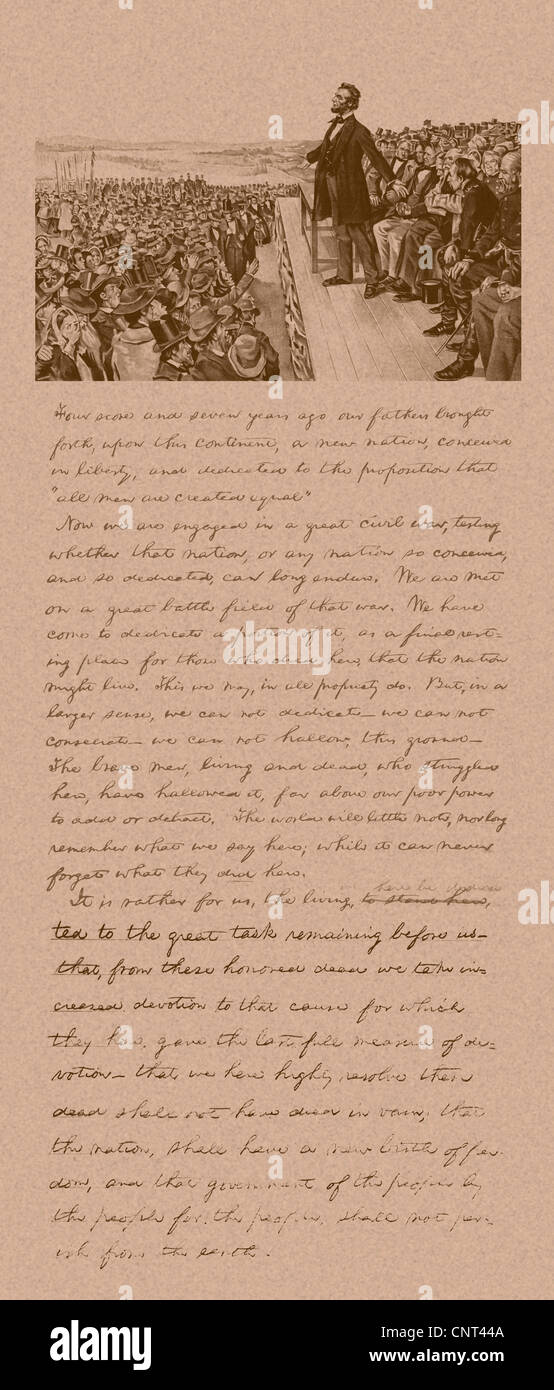 Four score and seven years ago our fathers brought
forth, upon this continent, a new nation, conceived
in liberty, and dedicated to the proposition that
"all men are created equal"
Now we are engaged in a great civil war, testing
whether that nation, or any nation so conceived,
and so dedicated, can long endure. We are met
on a great battle field of that war. We have
come to dedicate a portion of it, as a final rest-
ing place for those who died here, that the nation
might live. This we may, in all propriety do. But, in a
larger sense, we can not dedicate— we can not
consecrate— we can not hallow, this ground—
The brave men, living and dead, who struggled
here, have hallowed it, far above our poor power
to add or detract. The world will little note, nor long
remember what we say here; while it can never
forget what they did here.
we here be dedica
It is rather for us, the living, to stand here,
ted to the great task remaining before us—
that, from these honored dead we take in-
creased devotion to that cause for which
they here, gave the last full measure of de-
votion— that we here highly resolve these
dead shall not have died in vain; that
the nation, shall have a new birth of free-
dom, and that government of the people by
the people for the people, shall not per-
ish from the earth.
alamy
a
a
alamy
Image ID: CNT44A
www.alamy.com